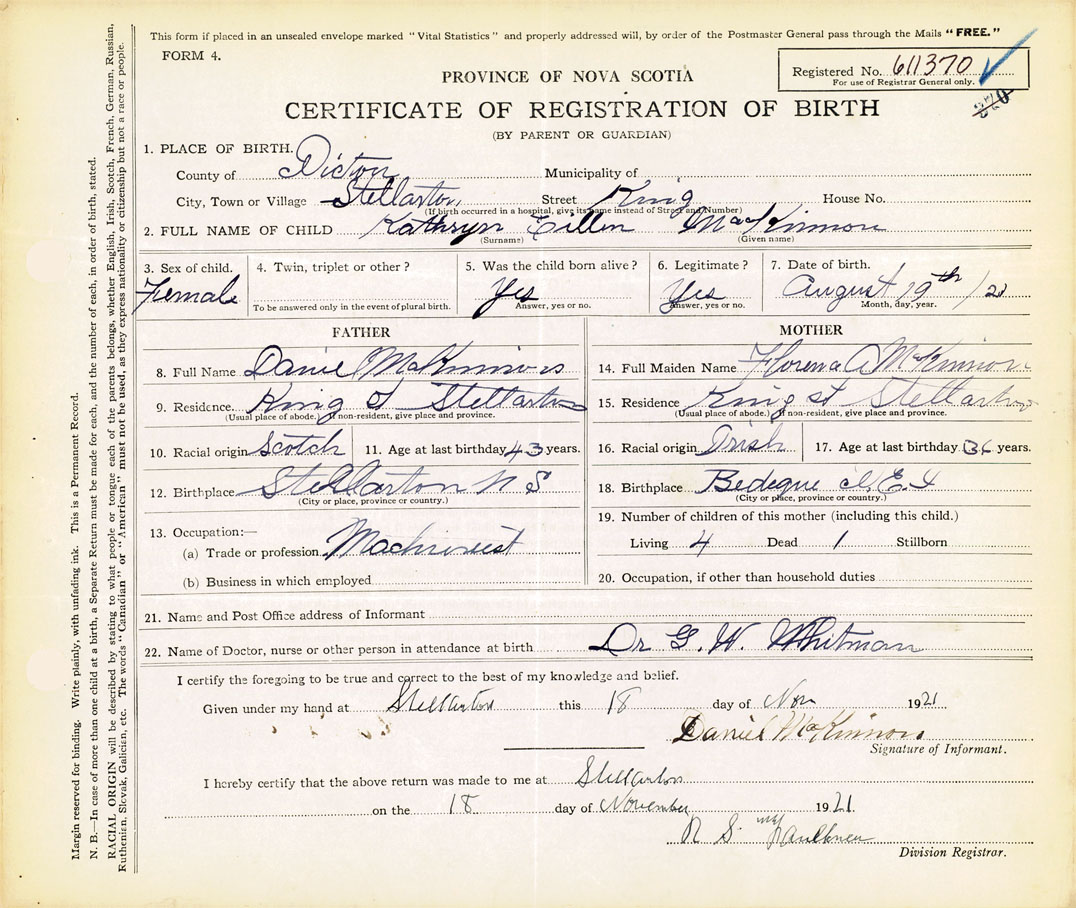 This form if placed in an unsealed envelope marked "Vital Statistics" and properly addressed will, by order of the Postmaster General pass through the Mails "FREE."
FORM 4.
Registered No. 611370
For use of Registrar General only.
370
PROVINCE OF NOVA SCOTIA
CERTIFICATE OF REGISTRATION OF BIRTH
(BY PARENT OR GUARDIAN)
1. PLACE OF BIRTH.
County of Pictou Municipality of
City, Town or Village Stellarton, Street King House No.
(If birth occurred in a hospital, give its name instead of Street and Number)
2. FULL NAME OF CHILD Kathryn Eillen MacKinnon
(Surname) (Given name)
3. Sex of child. Female
4. Twin, triplet or other?
To be answered only in the event of plural birth.
5. Was the child born alive? Yes
Answer, yes or no.
6. Legitimate? Yes
Answer, yes or no.
7. Date of birth. August 19th / 21
Month, day, year.
FATHER
8. Full Name Daniel McKinnon
9. Residence. King St Stellarton
(Usual place of abode.) If non-resident, give place and province.
10. Racial origin Scotch 11. Age at last birthday 43 years.
12. Birthplace Stellarton N S
(City or place, province or country.)
13. Occupation:—
(a) Trade or profession. Machinest
(b) Business in which employed
MOTHER
14. Full Maiden Name Florence A McKinnon
15. Residence King St Stellarton
(Usual place of abode.) If non-resident, give place and province.
16. Racial origin Irish 17. Age at last birthday 36 years.
18. Birthplace Bedeque
(City or place, province or country.)
19. Number of children of this mother (including this child.)
Living 4 Dead 1 Stillborn
20. Occupation, if other than household duties
21. Name and Post Office address of Informant
22. Name of Doctor, nurse or other person in attendance at birth Dr G. W. Whitman
I certify the foregoing to be true and correct to the best of my knowledge and belief.
Given under my hand at Stellarton this 18 day of Nov 1921
Daniel McKinnon
Signature of Informant.
I hereby certify that the above return was made to me at Stellarton
on the 18 day of November 1921.
R S Faulkner
Division Registrar.
Margin reserved for binding. Write plainly, with unfading ink. This is a Permanent Record.
N. B.—In case of more than one child at a birth, a Separate Return must be made for each, and the number of each, in order of birth, stated.
RACIAL ORIGIN will be described by stating to what people or tongue each of the parents belongs, whether English, Irish, Scotch, French, German, Russian,
Ruthenian, Slovak, Galician, etc. The words "Canadian" or "American" must not be used, as they express nationality or citizenship but not a race or people.